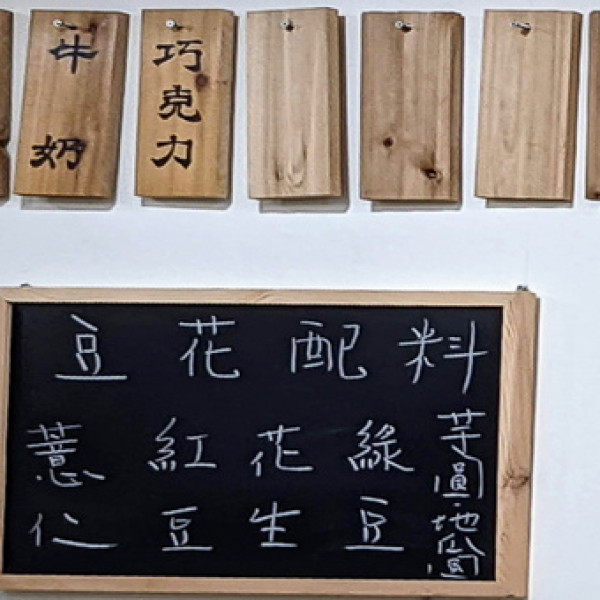 牛奶
巧克力
豆花配料
薏仁
紅豆
花生
綠豆
芋圓·地瓜圓